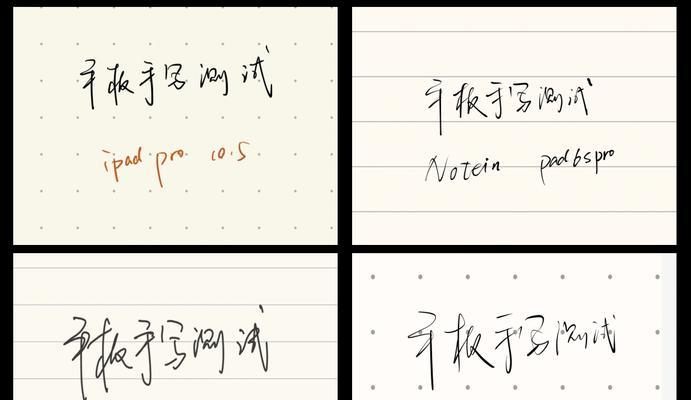 平板手写测试
ipad pro 10.5
平板手写测试
Notein pad6spro
平板手写测试
平板手写测试